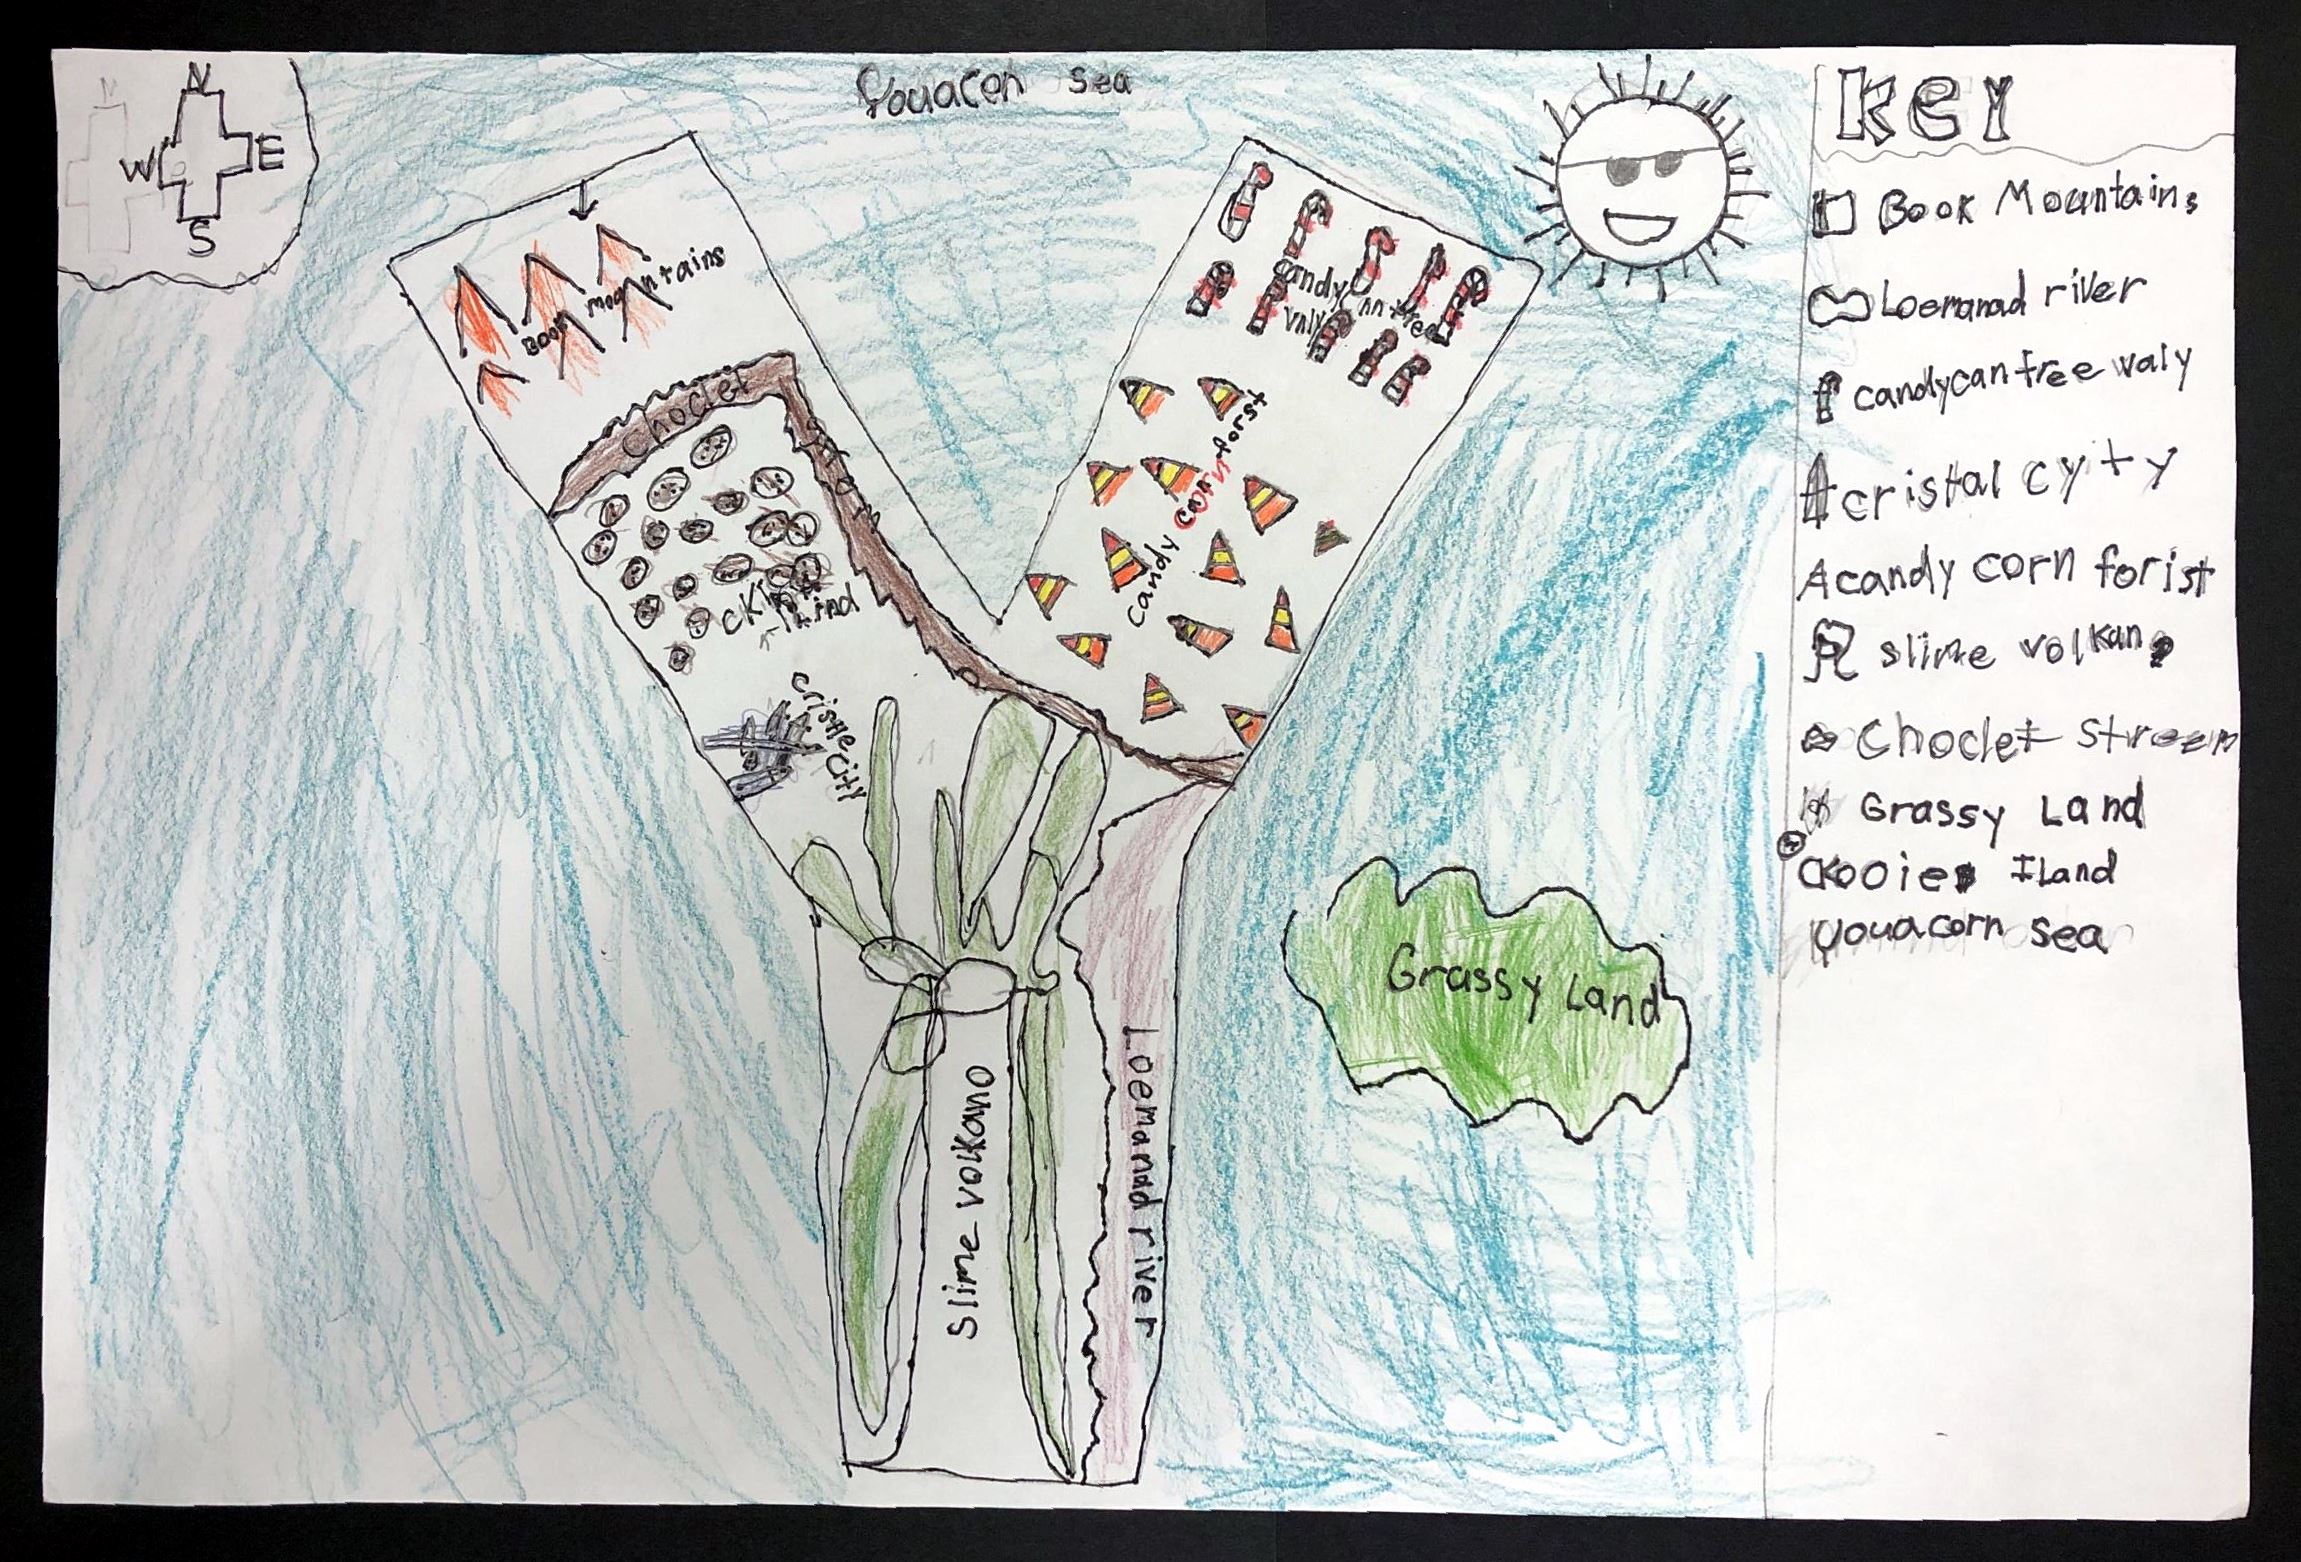 N
W E
S
Youacon sea
Book mountains
Choclet
candy
Candy corn forst
cristle
City
Slime volkano
Loemanad river
Grassy Land
Key
Book Mountains
Loemanad river
candycantree waly
cristal cyty
candy corn forist
slime volkano
Choclet Streem
Grassy Land
Kooies Iland
Youacorn sea